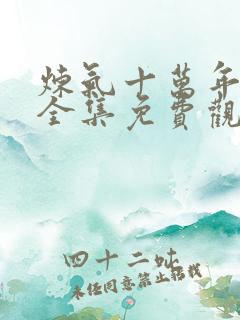 煉氣十萬年
全集免費觀
四十二咗
未经同意禁止转载